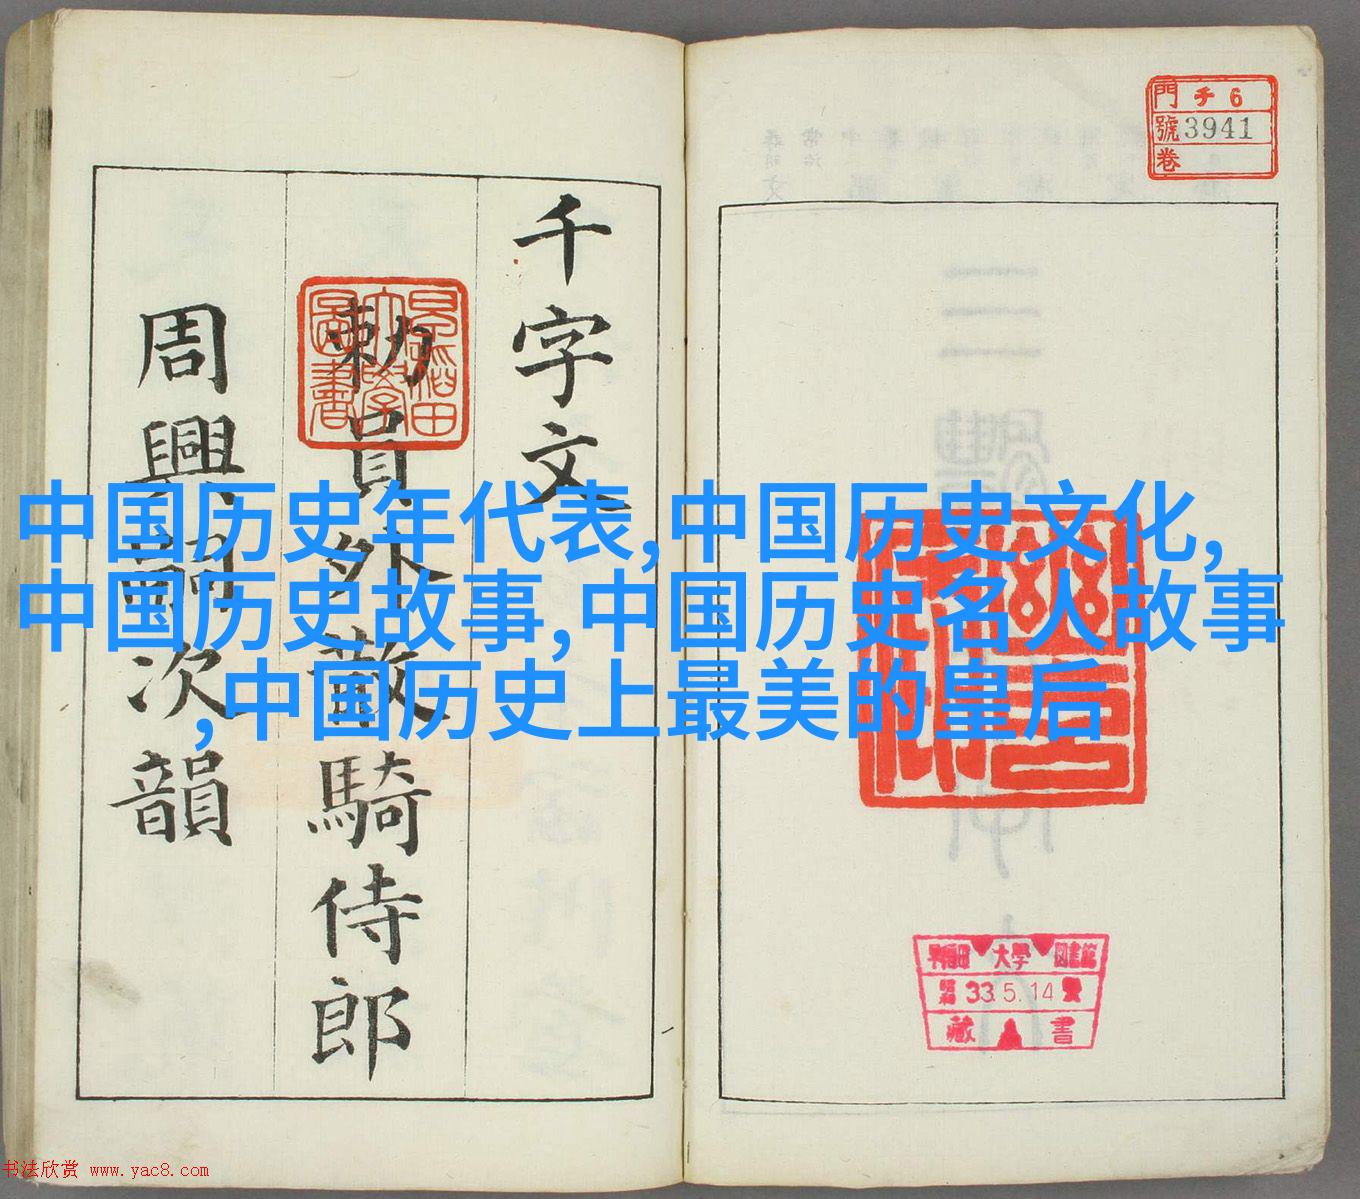 門 チ 6
號 3941
卷
千字文
勅員外散騎侍郎
周興嗣次韻
早稲田大學圖書
中国历史年代表,中国历史文化,
中国历史故事,中国历史名人故事
,中国历史上最美的皇后
早稲田大學図書館
昭和 33.5.14
藏書
书法欣赏 www.yac8.com